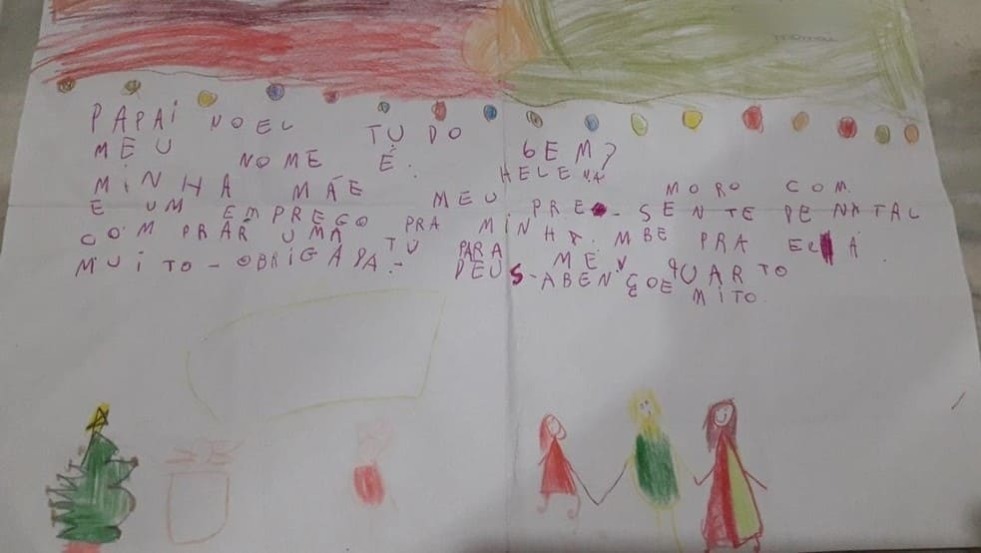 PAPAI NOEL TUDO BEM?
MEU NOME É. HELENA
MINHA MÃE MORO COM.
E UM EMPREGO MEU. PRE - SENTE DE NATAL
COMPRAR UMA PRA MINHA. MBE PRA ELA.
TV PARA MEU QUARTO
MUITO - OBRIGADA. - DEUS - ABENÇOE MITO.